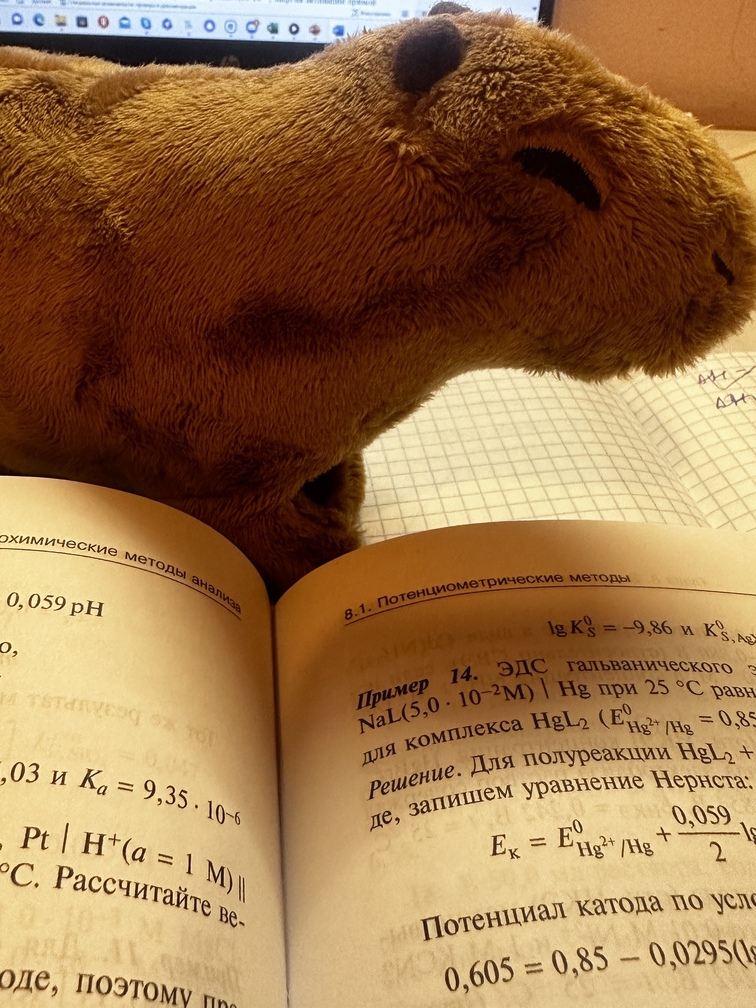 методы анализа
0,059 pH
о,
,03 и Kₐ = 9,35 · 10⁻⁶
, Pt | H⁺(a = 1 M) ||
°C. Рассчитайте ве-
оде, поэтому
8.1. Потенциометрические методы
lg K⁰S = –9,86 и K⁰S, Ag
Пример 14. ЭДС гальванического э
NaL(5,0 · 10⁻²M) | Hg при 25 °C равн
для комплекса HgL₂ (E⁰Hg²⁺/Hg = 0,85
Решение. Для полуреакции HgL₂ +
де, запишем уравнение Нернста:
Eк = E⁰Hg²⁺/Hg + 0,059/2 lg
Потенциал катода по усло
0,605 = 0,85 – 0,0295(lg